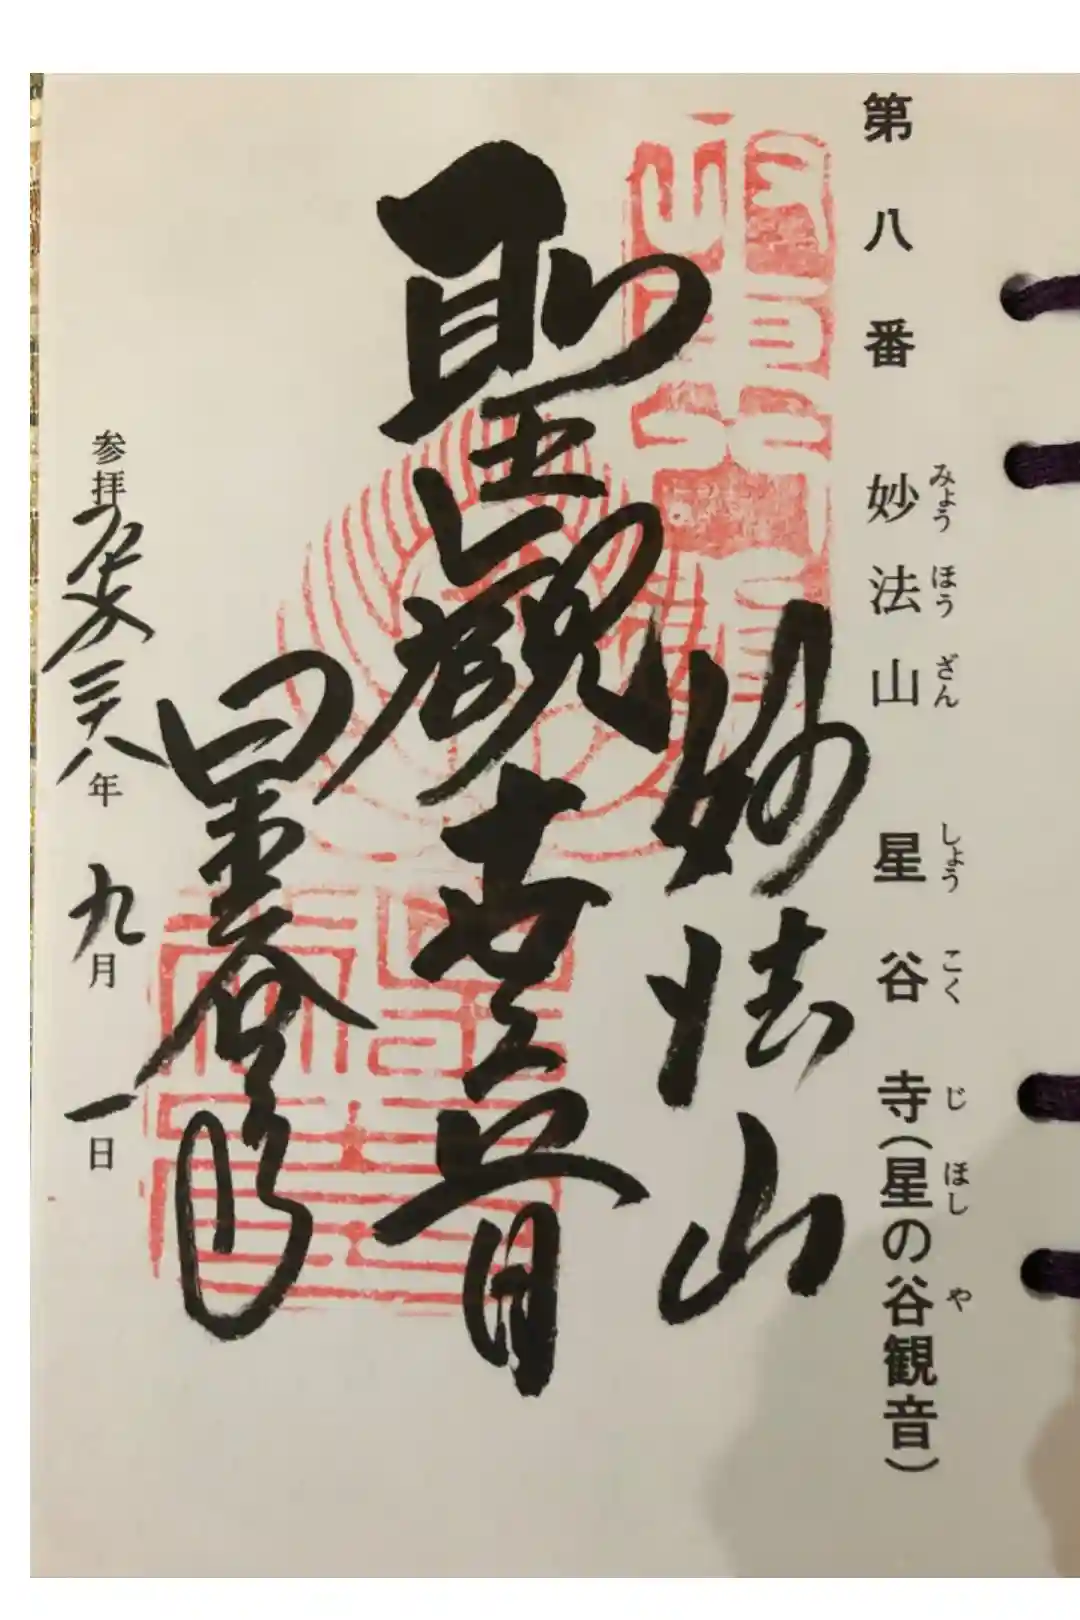 第八番 妙法山 星谷寺(星の谷観音)
みょう ほう ざん しょう こく じ ほし や
妙法山
聖観世音
星谷寺
参拝平成二十八年 九月 一日